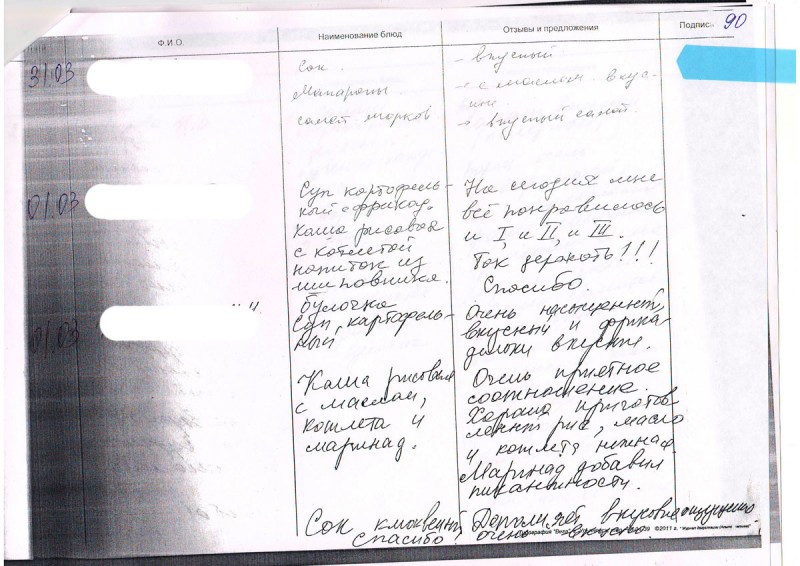 90
Ф.И.О.
Наименование блюд
Отзывы и предложения
Подпис
31.03
Сок.
- вкусный.
Макароны.
- с маслом - вкус-
ные
салат морков
- вкусный салат.
01.03
Суп картофель-
ный с фрикад.
Каша рисовая
с котлетой
напиток из
шиповника.
Булочка
На сегодня мне
всё понравилось
и I, и II, и III.
Так держать!!!
Спасибо.
01.03
Суп картофель-
ный,
Очень насыщенный,
вкусный и фрика-
дельки вкусные.
Каша рисовая
с маслом,
котлета и
маринад.
Очень приятное
соотношение.
Хорошо приготов-
ленный рис, масло
и котлета нежная.
Маринад добавил
пикантности.
Сок клюквенный
Спасибо!
вкусовые ощущения
очень вкусно.
©2011 г.